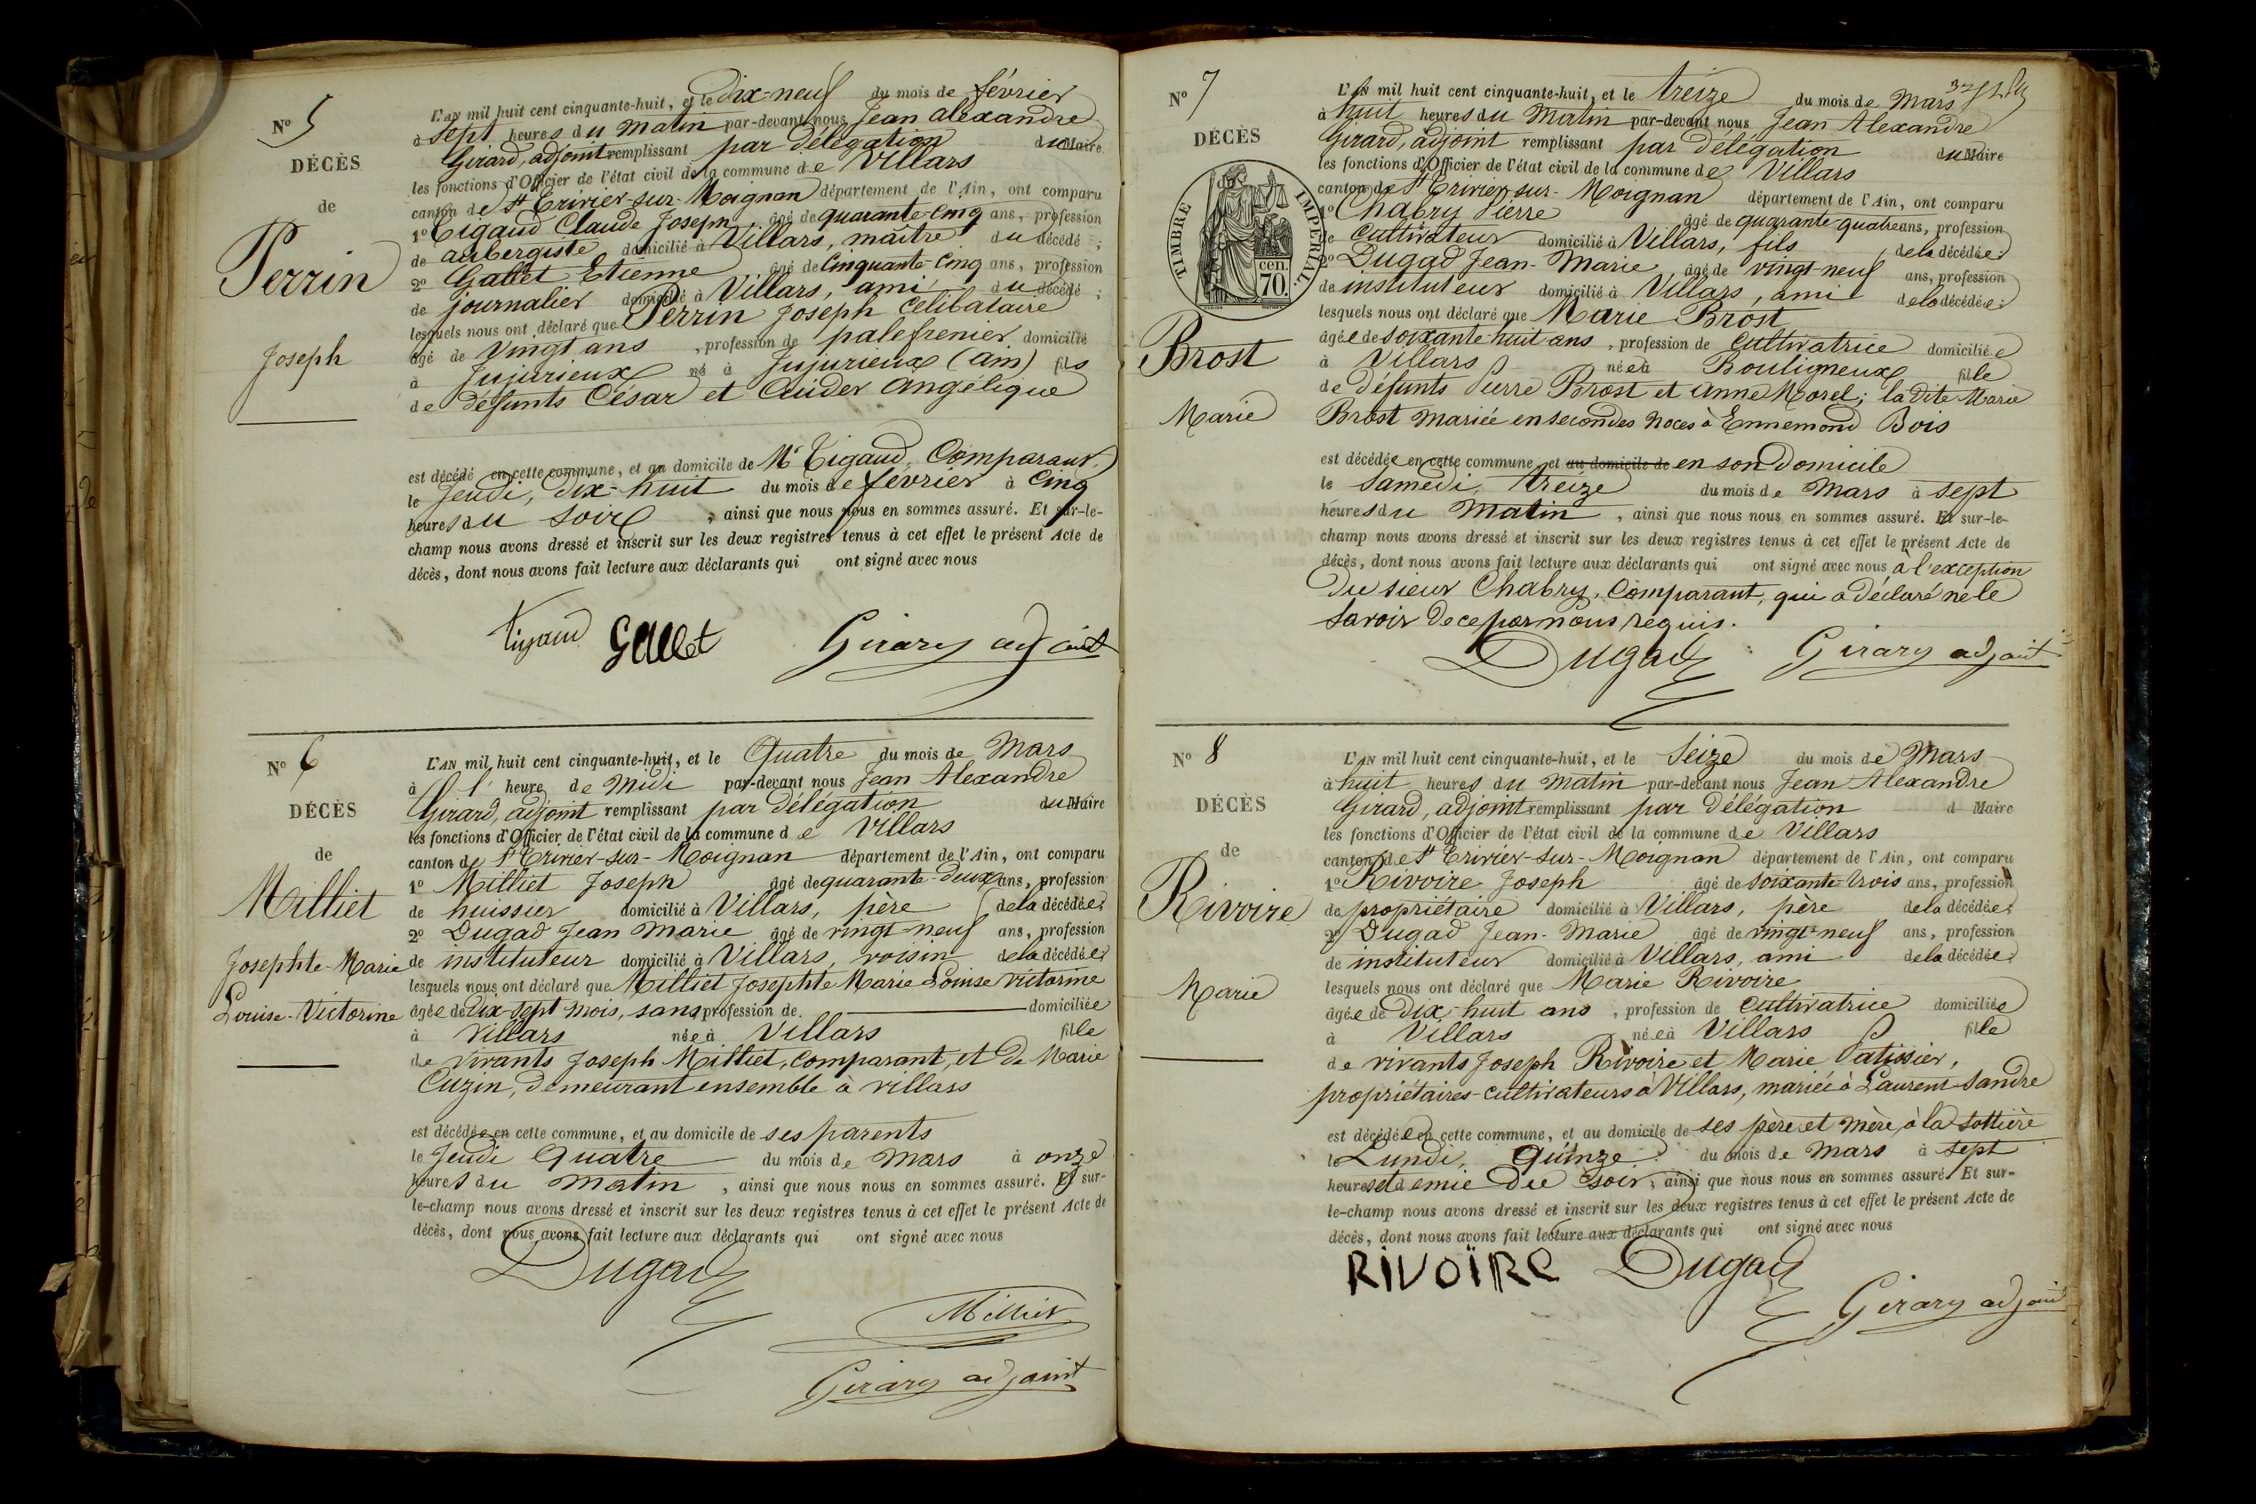 N° 5
DÉCÈS
de
Perrin
Joseph
L'AN mil huit cent cinquante-huit, et le Dix-neuf du mois de février
à sept heures du matin par-devant nous Jean Alexandre
Girard, adjoint remplissant par délégation du Maire
les fonctions d'Officier de l'état civil de la commune de Villars
canton de St Trivier-sur-Moignan département de l'Ain, ont comparu
1° Tigaud Claude Joseph âgé de quarante-cinq ans, profession
de aubergiste domicilié à Villars, maître du décédé;
2° Gallet Etienne âgé de Cinquante-Cinq ans, profession
de journalier domicilié à Villars, ami du décédé;
lesquels nous ont déclaré que Perrin Joseph Célibataire
âgé de vingt ans, profession de palefrenier domicilié
à Jujurieux né à Jujurieux (ain) fils
de défunts César et Cuider Angélique
est décédé en cette commune, et au domicile de Mr Tigaud, Comparant,
le Jeudi, dix-huit du mois de février à Cinq
heures du soir, ainsi que nous nous en sommes assuré. Et sur-le-
champ nous avons dressé et inscrit sur les deux registres tenus à cet effet le présent Acte de
décès, dont nous avons fait lecture aux déclarants qui ont signé avec nous
Tigaud Gallet Girard adjoint
N° 6
DÉCÈS
de
Milliet
Josephte-Marie
Louise-Victorine
L'AN mil huit cent cinquante-huit, et le Quatre du mois de Mars
à l' heure de Midi par-devant nous Jean Alexandre
Girard, adjoint remplissant par délégation du Maire
les fonctions d'Officier de l'état civil de la commune de Villars
canton de St Trivier-sur-Moignan département de l'Ain, ont comparu
1° Milliet Joseph âgé de quarante-deux ans, profession
de huissier domicilié à Villars, père de la décédée;
2° Dugad Jean Marie âgé de vingt-neuf ans, profession
de instituteur domicilié à Villars, voisin de la décédée;
lesquels nous ont déclaré que Milliet Josephte Marie Louise Victorine
âgée de Dix-sept mois, sans profession de domiciliée
à Villars née à Villars fille
de vivants Joseph Milliet, comparant, et de Marie
Cuzin, demeurant ensemble à Villars
est décédée en cette commune, et au domicile de ses parents
le Jeudi Quatre du mois de Mars à onze
heures du matin, ainsi que nous nous en sommes assuré. Et sur-
le-champ nous avons dressé et inscrit sur les deux registres tenus à cet effet le présent Acte de
décès, dont nous avons fait lecture aux déclarants qui ont signé avec nous
Dugad
Milliet
Girard adjoint
N° 7
DÉCÈS
TIMBRE IMPERIAL.
70. cen.
Brost
Marie
L'AN mil huit cent cinquante-huit, et le treize du mois de Mars
à huit heures du Matin par-devant nous Jean Alexandre
Girard, adjoint remplissant par délégation du Maire
les fonctions d'Officier de l'état civil de la commune de Villars
canton de St Trivier-sur-Moignan département de l'Ain, ont comparu
1° Chabry Pierre âgé de quarante-quatre ans, profession
de cultivateur domicilié à Villars, fils de la décédée;
2° Dugad Jean-Marie âgé de vingt-neuf ans, profession
de instituteur domicilié à Villars, ami de la décédée;
lesquels nous ont déclaré que Marie Brost
âgée de soixante-huit ans, profession de Cultivatrice domiciliée
à Villars née à Bouligneux fille
de défunts Pierre Brost et Anne Morel; la dite Marie
Brost mariée en secondes noces à Ennemond Bois
est décédée en cette commune, et au domicile de en son Domicile
le samedi, treize du mois de Mars à sept
heures du Matin, ainsi que nous nous en sommes assuré. Et sur-le-
champ nous avons dressé et inscrit sur les deux registres tenus à cet effet le présent Acte de
décès, dont nous avons fait lecture aux déclarants qui ont signé avec nous à l'exception
du sieur Chabry, Comparant, qui a déclaré ne le
savoir de ce par nous réquis.
Dugad Girard adjoint
N° 8
DÉCÈS
de
Rivoire
Marie
L'AN mil huit cent cinquante-huit, et le Seize du mois de Mars
à huit heures du matin par-devant nous Jean Alexandre
Girard, adjoint remplissant par délégation d Maire
les fonctions d'Officier de l'état civil de la commune de Villars
canton de St Trivier-sur-Moignan département de l'Ain, ont comparu
1° Rivoire Joseph âgé de soixante-trois ans, profession
de propriétaire domicilié à Villars, père de la décédée;
2° Dugad Jean-Marie âgé de vingt-neuf ans, profession
de instituteur domicilié à Villars, ami de la décédée;
lesquels nous ont déclaré que Marie Rivoire
âgée de Dix-huit ans, profession de Cultivatrice domiciliée
à Villars née à Villars fille
de vivants Joseph Rivoire et Marie Patissier,
propriétaires-cultivateurs à Villars, mariée à Laurent Sandre
est décédée en cette commune, et au domicile de ses père et mère, à la Sottière
le Lundi, Quinze du mois de Mars à sept
heures et demie du soir, ainsi que nous nous en sommes assuré. Et sur-
le-champ nous avons dressé et inscrit sur les deux registres tenus à cet effet le présent Acte de
décès, dont nous avons fait lecture aux déclarants qui ont signé avec nous
RIVOIRE Dugad
Girard adjoint